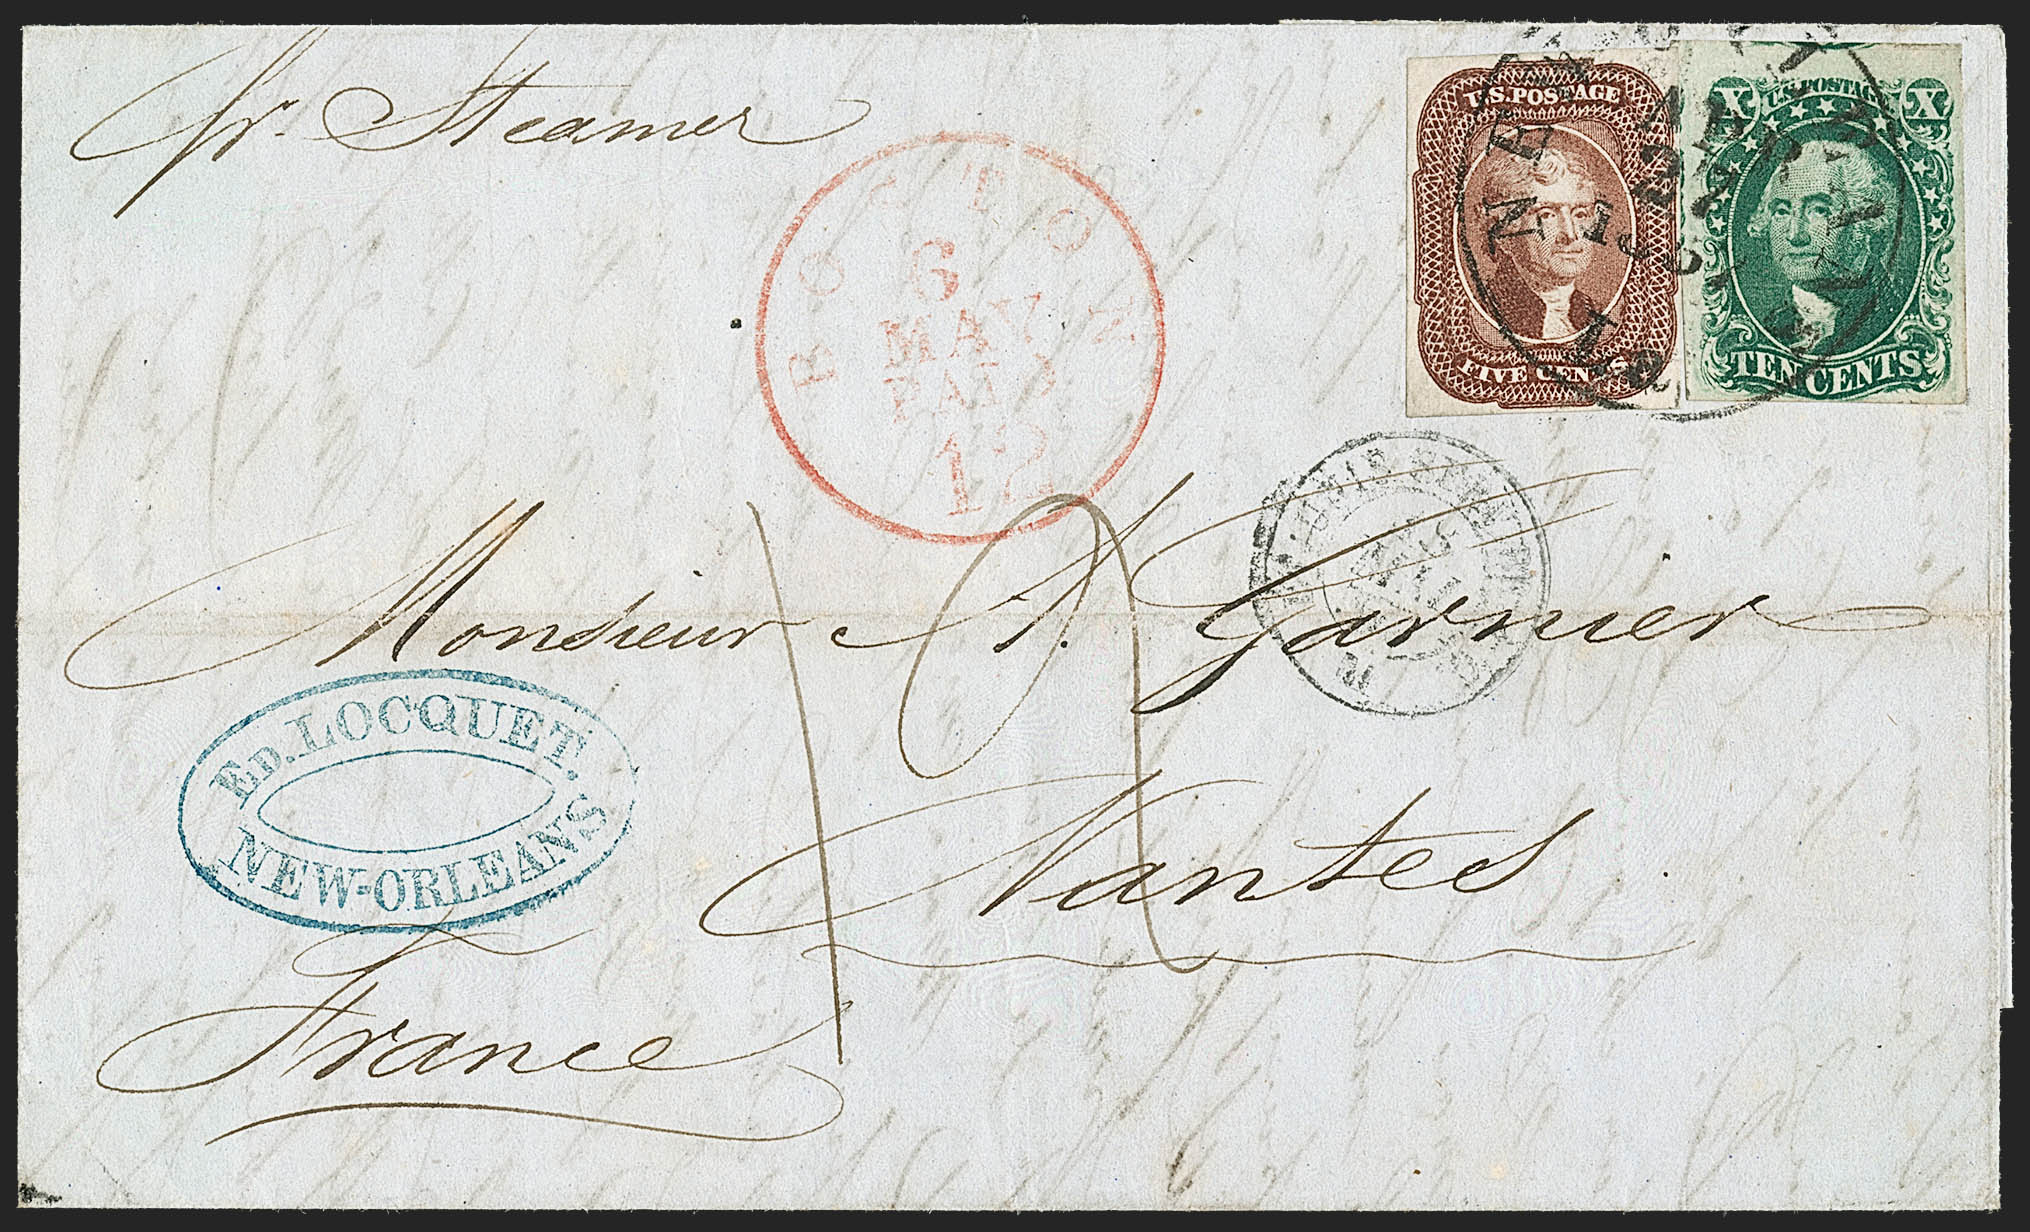 pr. Steamer
BOSTON
6
MAY
PAID
12
U.S. POSTAGE
FIVE CENTS
X U.S. POSTAGE X
TEN CENTS
NEW
APR
Monsieur A. Garnier
Nantes
France
ED. LOCQUET.
NEW-ORLEANS